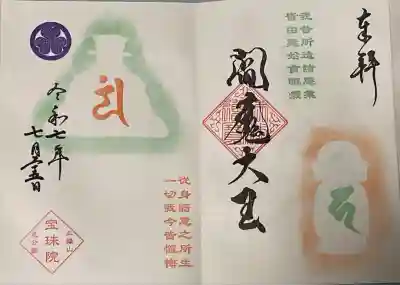 奉拝
我昔所造諸悪業
皆由無始貪瞋癡
閻魔大王
従身語意之所生
一切我今皆懺悔
令和七年
七月十五日
三縁山
宝珠院
芝公園